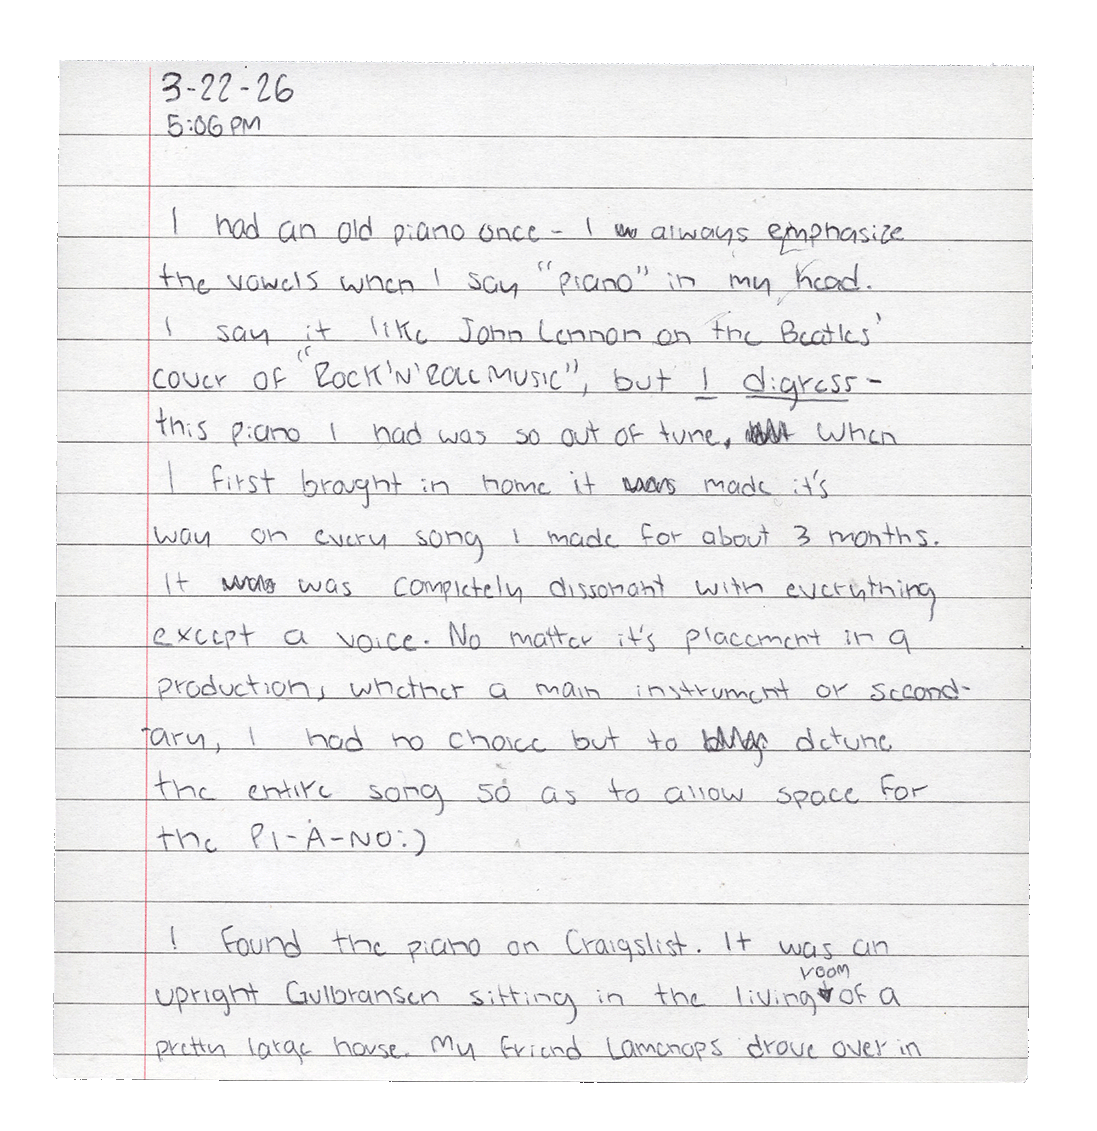 3-22-26
5:06 PM
I had an old piano once - I always emphasize
the vowels when I say "piano" in my head.
I say it like John Lennon on the Beatles'
cover of "ROCK'N'ROLL MUSIC", but I digress -
this piano I had was so out of tune. When
I first brought in home it made it's
way on every song I made for about 3 months.
It was completely dissonant with everything
except a voice. No matter it's placement in a
production, whether a main instrument or second-
ary, I had no choice but to detune
the entire song so as to allow space for
the PI-A-NO:)
I found the piano on Craigslist. It was an
upright Gulbransen sitting in the living room of a
pretty large house. My friend Lamenops drove over in